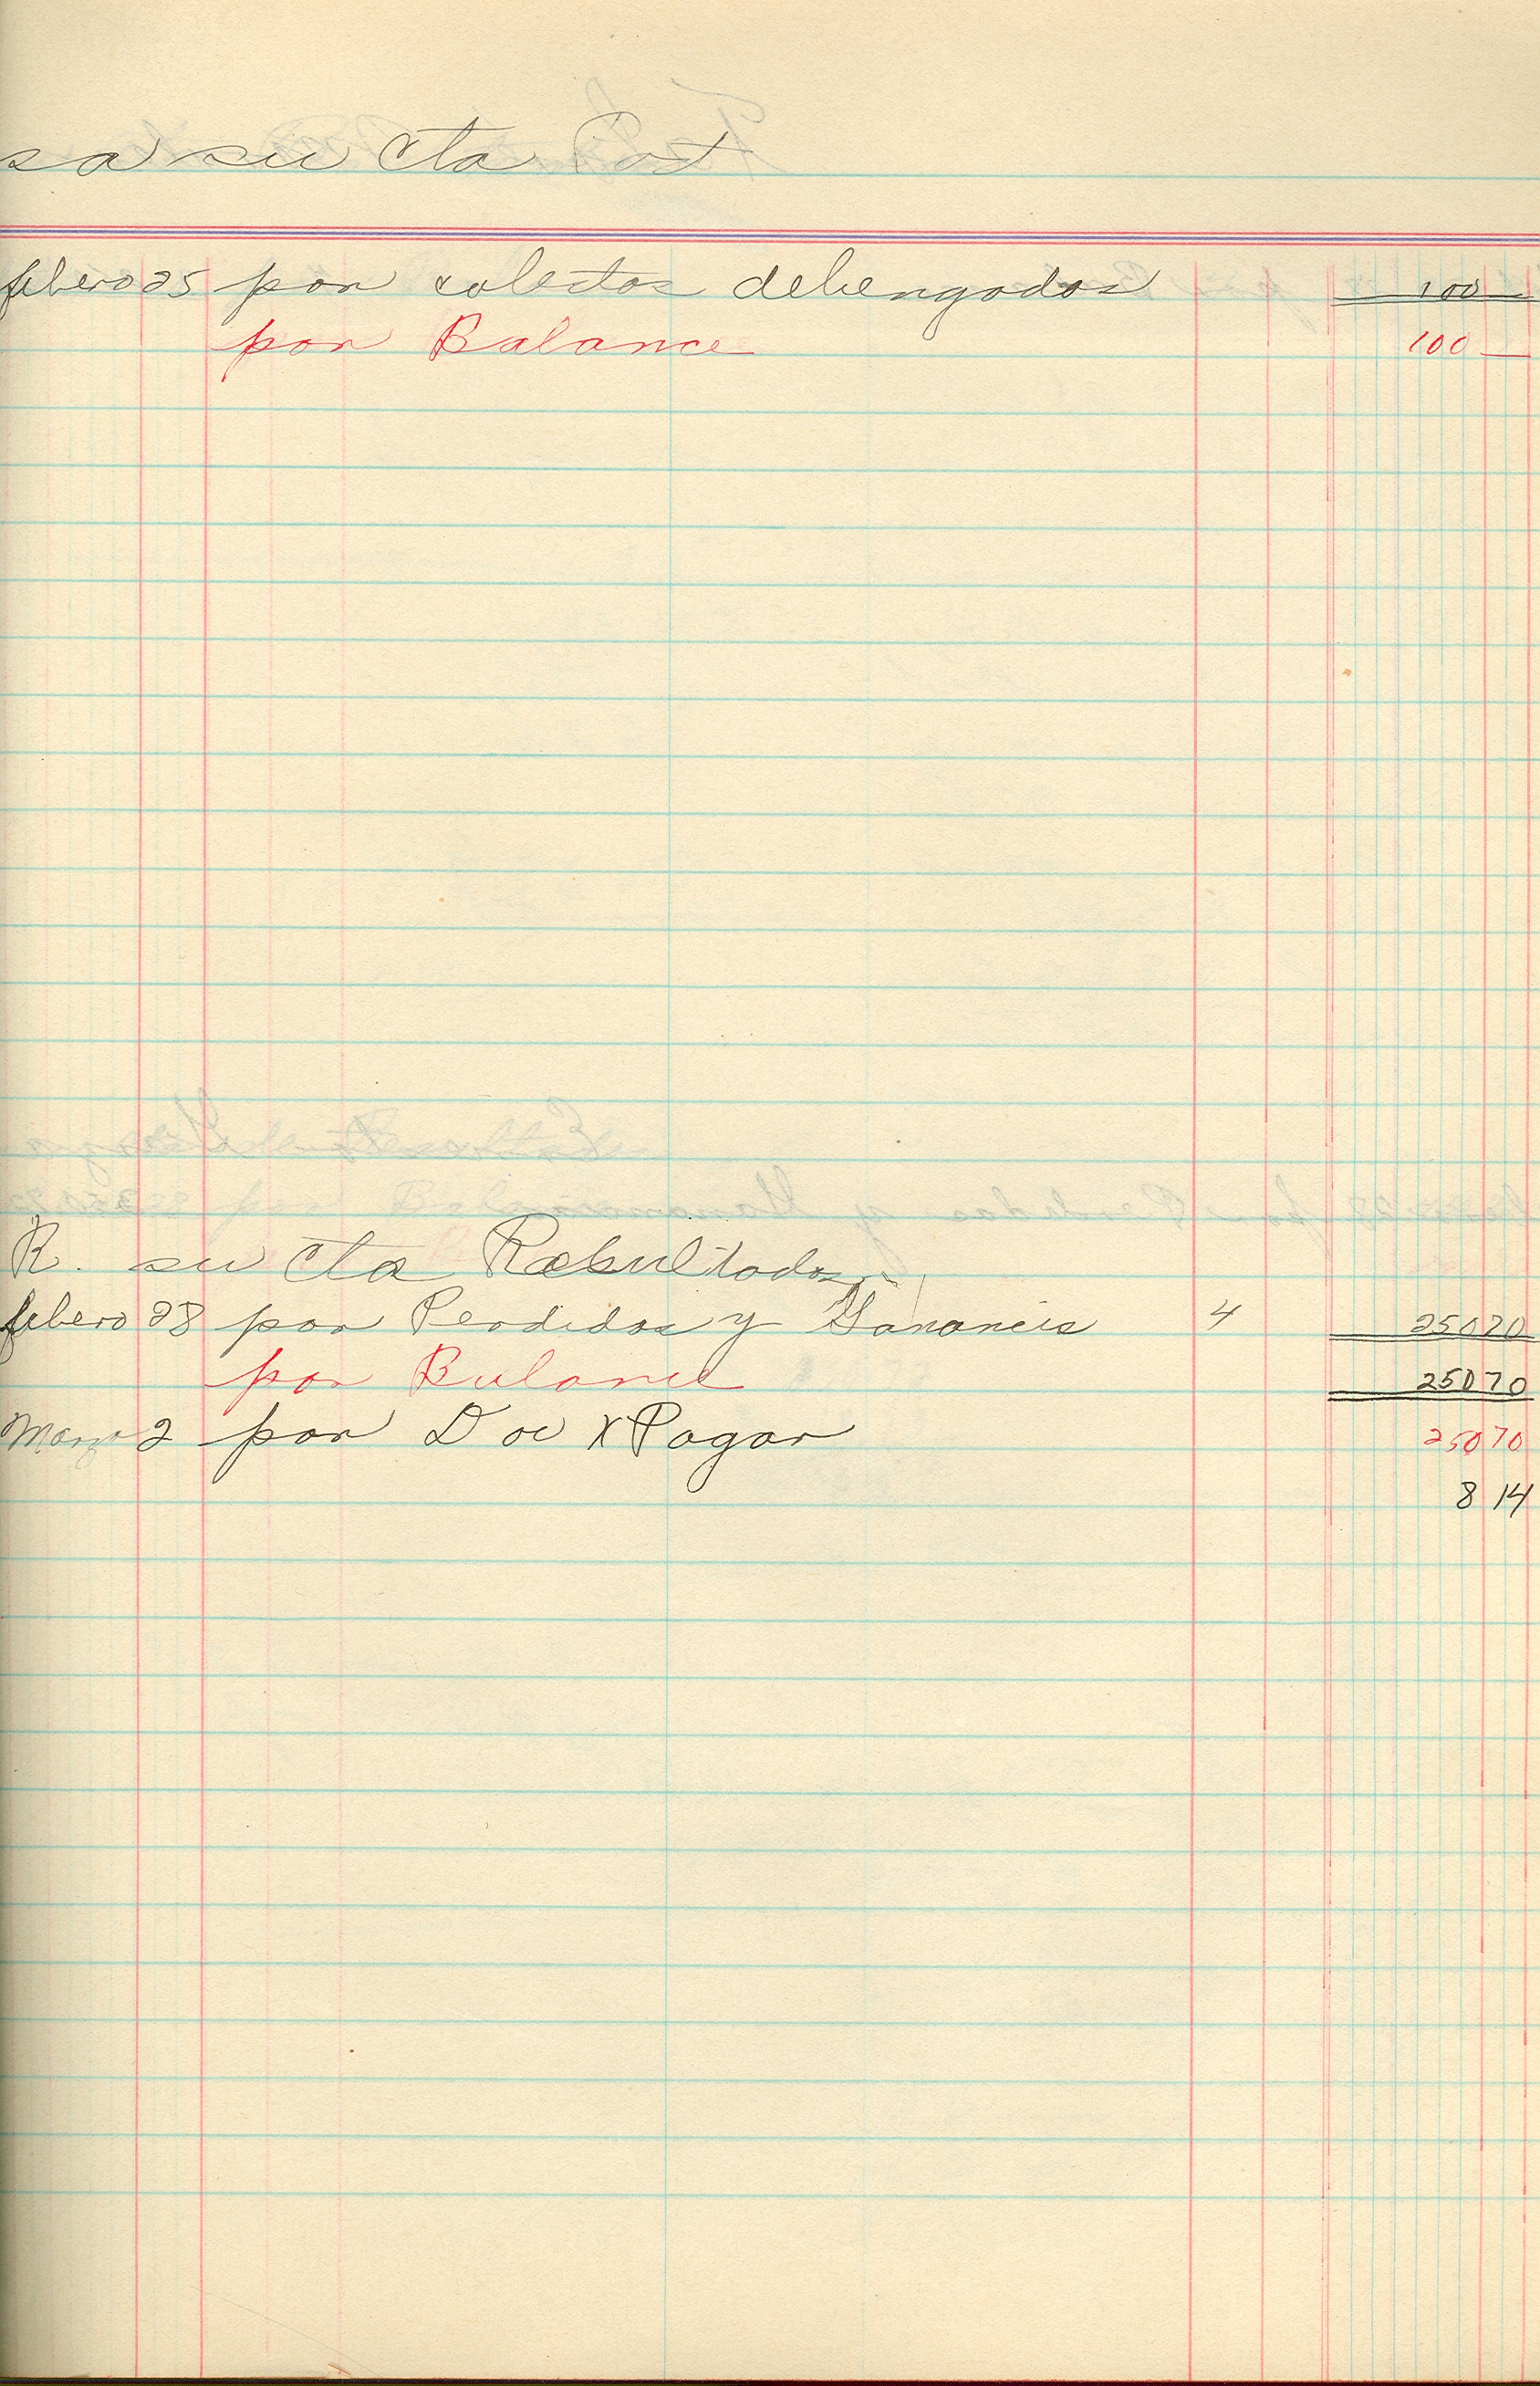 sa su cta Pat
febero 25 por colectos debengados 100 —
por Balance 100 —
R. su cta Resultados
febero 28 por Perdidas y Ganancis 4 250 70
por Balance 250 70
Marzo 2 por Doc X Pagar 250 70
8 14